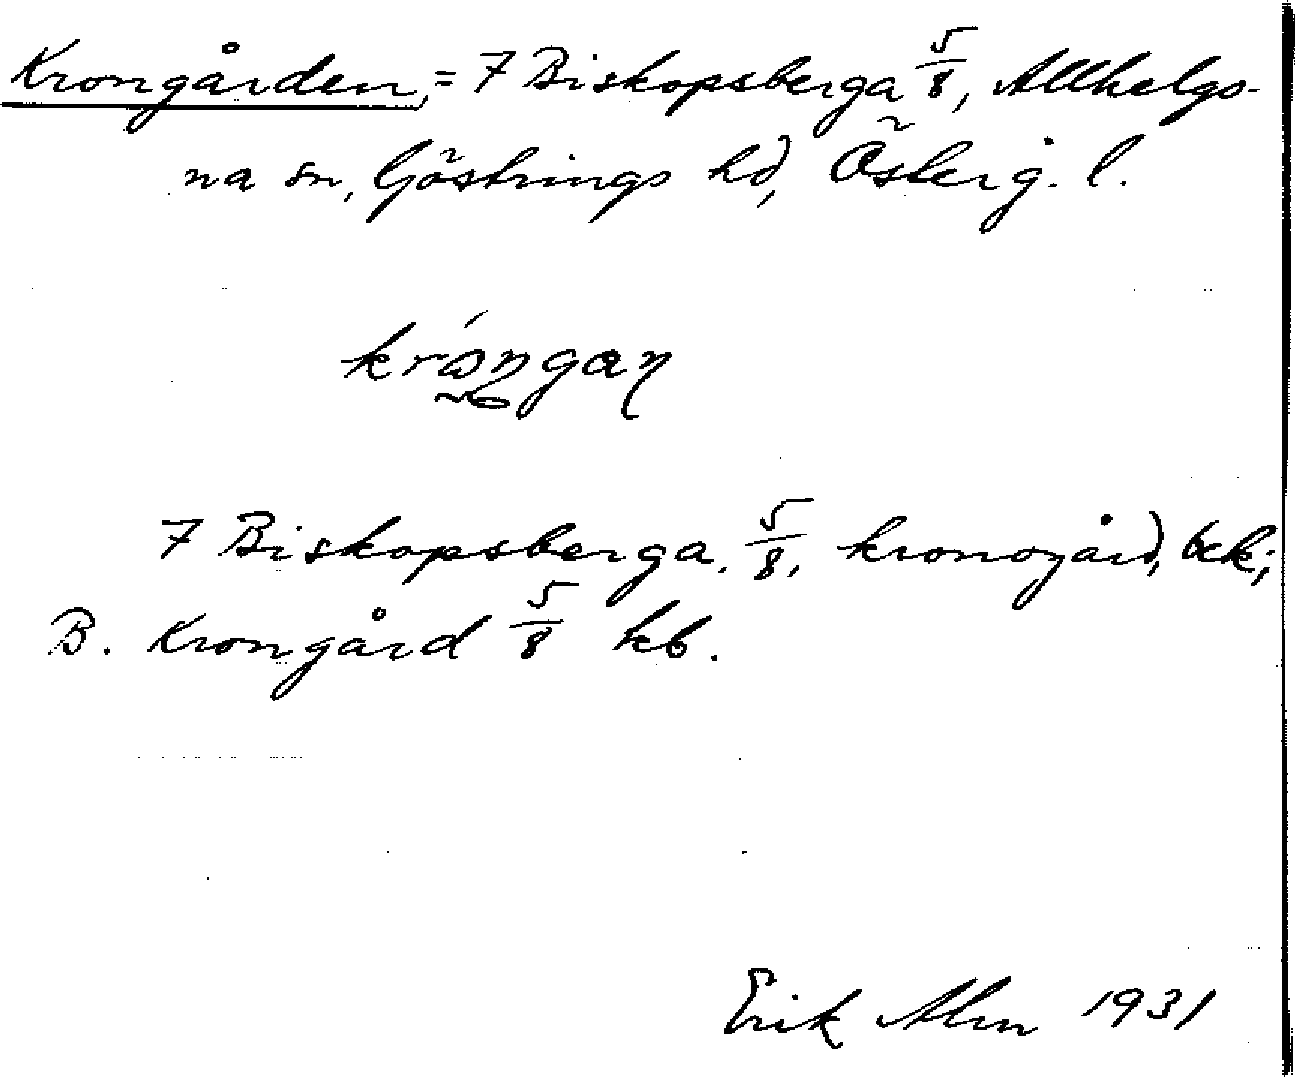 Krongården, = 7 Biskopsberga 5/8, Allhelgo-
na sn, Göstrings hd, Österg. l.
7 Biskopsberga, 5/8, kronogård, bek;
B. Krongård 5/8 kb.
Erik Alm 1931